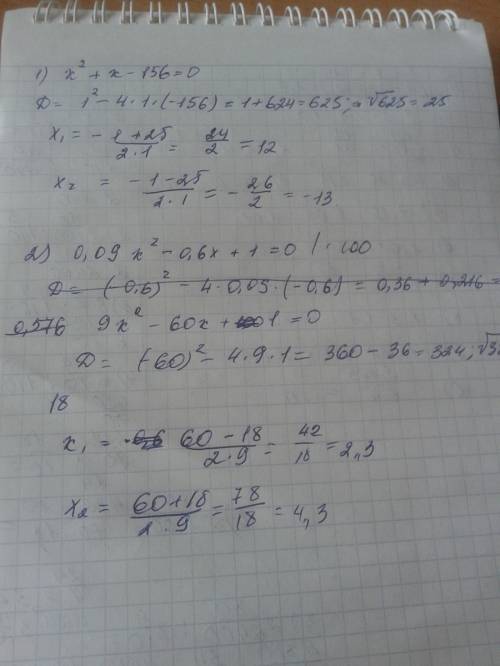 1) x² + x - 156 = 0
D = 1² - 4 · 1 · (-156) = 1 + 624 = 625; √625 = 25
x₁ = -1+25/2·1 = 24/2 = 12
x₂ = -1-25/2·1 = -26/2 = -13
2) 0,09 x² - 0,6x + 1 = 0 | · 100
D = (-0,6)² - 4 · 0,09 · (-0,6) = 0,36 + 0,216 =
0,576 9x² - 60x + 1 = 0
D = (-60)² - 4 · 9 · 1 = 360 - 36 = 324; √3
18
x₁ = 60-18/2·9 = 42/18 = 2,3
x₂ = 60+18/2·9 = 78/18 = 4,3